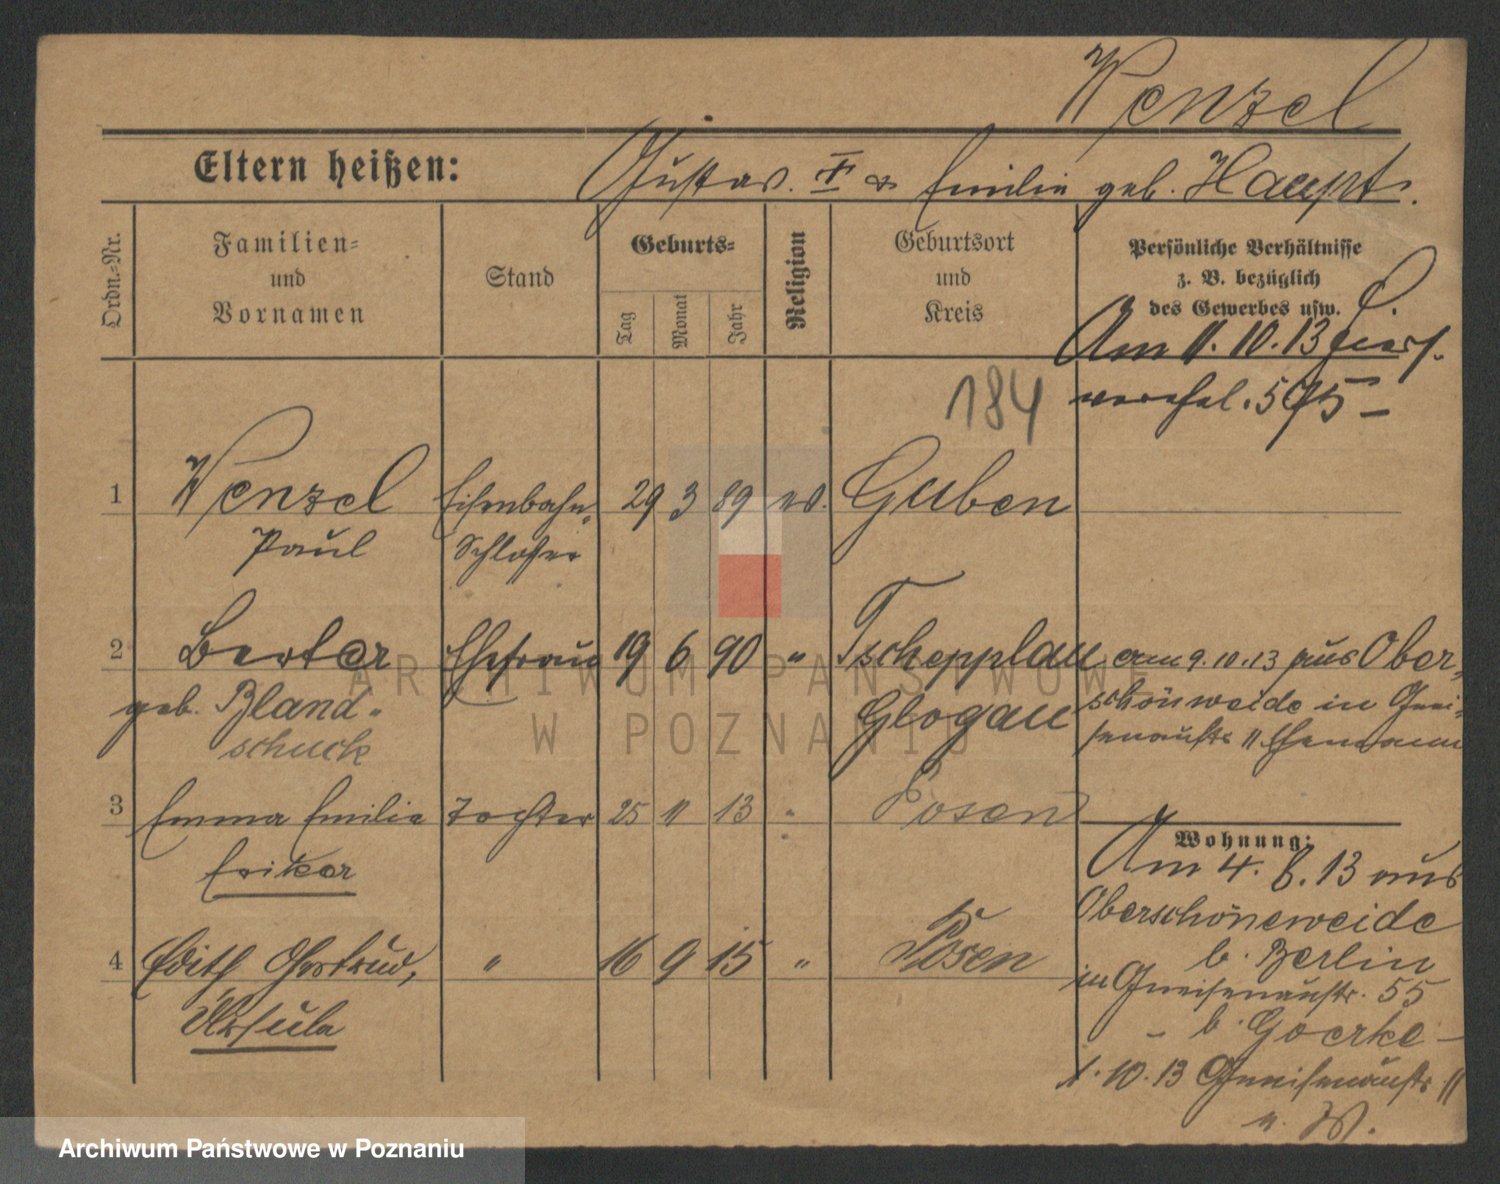 Wenzel
Eltern heißen: Gustav. † & Emilie geb. Haupt.
Ordn.=Nr.
Familien=
und
Vornamen
Stand
Geburts=
Tag
Monat
Jahr
Religion
Geburtsort
und
Kreis
Persönliche Verhältnisse
z. B. bezüglich
des Gewerbes usw.
Am 11. 10. 13 hier
verehel. 595 –
184
1 Wenzel Eisenbahn= 29 3 89 ev. Guben
Paul Schlosser
2 Berta Ehefrau 19 6 90 " Tschepplau am 9.10.13 aus Ober=
geb. Bland= Glogau schönweide in Gnei=
schuck senaustr 11 Ehemann
3 Emma Emilie Tochter 25 11 13 " Posen
Erika
Wohnung:
Am 4. 6. 13 aus
Oberschöneweide
b. Berlin
4 Edith Gertrud, " 16 9 15 " Posen
Ursula
in Gneisenaustr. 55
– b. Goerke –
1. 10. 13 Gneisenaustr 11
n. W.
ARCHIWUM PAŃSTWOWE
W POZNANIU
Archiwum Państwowe w Poznaniu